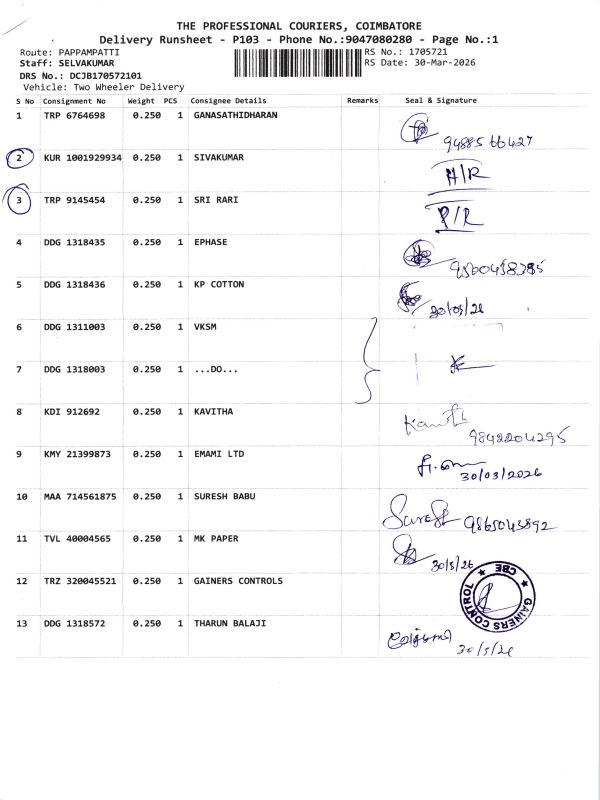 THE PROFESSIONAL COURIERS, COIMBATORE
Delivery Runsheet - P103 - Phone No.:9047080280 - Page No.:1
Route: PAPPAMPATTI RS No.: 1705721
Staff: SELVAKUMAR RS Date: 30-Mar-2026
DRS No.: DCJB170572101
Vehicle: Two Wheeler Delivery
S No Consignment No Weight PCS Consignee Details Remarks Seal & Signature
1 TRP 6764698 0.250 1 GANASATHIDHARAN
9488566427
2 KUR 1001929934 0.250 1 SIVAKUMAR H/R
3 TRP 9145454 0.250 1 SRI RARI P/R
4 DDG 1318435 0.250 1 EPHASE
5 DDG 1318436 0.250 1 KP COTTON 30/03/26
6 DDG 1311003 0.250 1 VKSM
7 DDG 1318003 0.250 1 ...DO...
8 KDI 912692 0.250 1 KAVITHA
9842204295
9 KMY 21399873 0.250 1 EMAMI LTD
30/03/2026
10 MAA 714561875 0.250 1 SURESH BABU
Suresh 9865043892
11 TVL 40004565 0.250 1 MK PAPER
30/3/26
12 TRZ 320045521 0.250 1 GAINERS CONTROLS
GAINERS CONTROL ★ CBE ★
13 DDG 1318572 0.250 1 THARUN BALAJI
30/3/26